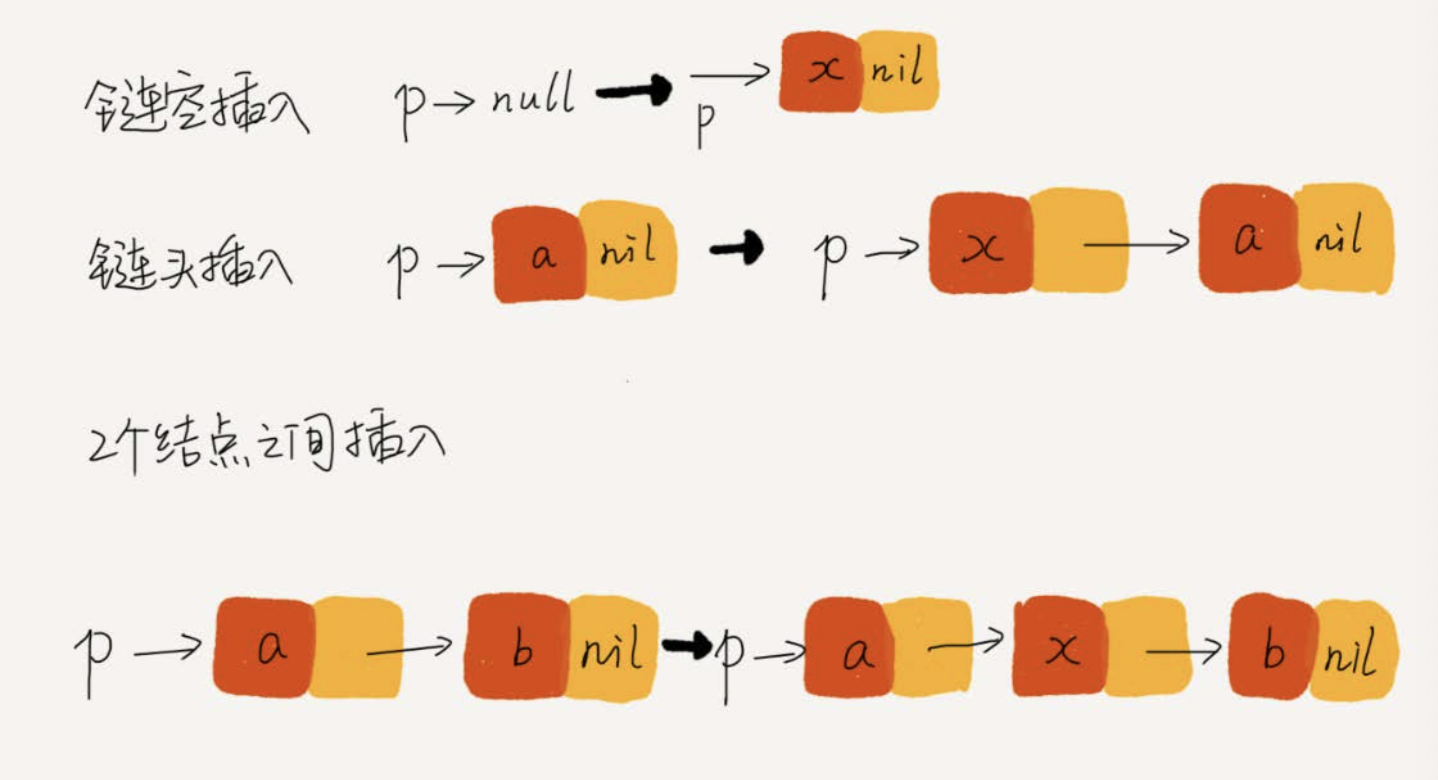 链空插入 p→ null → p → x nil
链头插入 p → a nil → p → x → a nil
2个结点之间插入
p → a → b nil → p → a → x → b nil